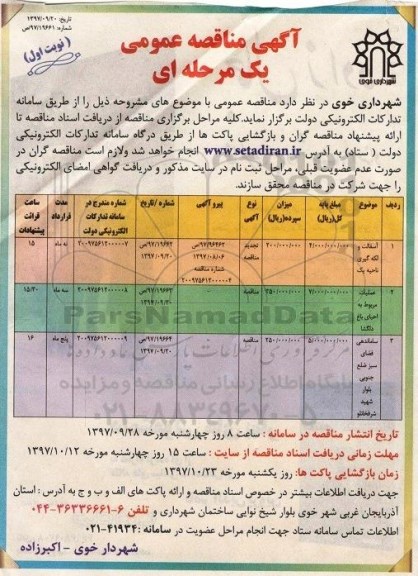 تاریخ: ۱۳۹۷/۰۹/۲۰
شماره: ۹۷/۱۹۶۶۱/ص
آگهی مناقصه عمومی
یک مرحله ای
(نوبت اول)
شهرداری خوی
شهرداری خوی در نظر دارد مناقصه عمومی با موضوع های مشروحه ذیل را از طریق سامانه
تدارکات الکترونیکی دولت برگزار نماید.کلیه مراحل برگزاری مناقصه از دریافت اسناد مناقصه تا
ارائه پیشنهاد مناقصه گران و بازگشایی پاکت ها از طریق درگاه سامانه تدارکات الکترونیکی
دولت ( ستاد) به آدرس www.setadiran.ir انجام خواهد شد ولازم است مناقصه گران در
صورت عدم عضویت قبلی، مراحل ثبت نام در سایت مذکور و دریافت گواهی امضای الکترونیکی
را جهت شرکت در مناقصه محقق سازند.
ردیف موضوع مبلغ پایه کل(ریال) میزان سپرده(ریال) نوع آگهی پیرو آگهی شماره /تاریخ شماره مندرج در سامانه تدارکات الکترونیکی دولت مدت قرارداد ساعت قرائت پیشنهادات
۱ آسفالت و لکه گیری ناحیه یک ۴/۰۰۰/۰۰۰/۰۰۰ ۲۰۰/۰۰۰/۰۰۰ تجدید مناقصه ۹۷/۹۶۴۶۳/ص ۹۷/۰۸/۰۶ شماره مناقصه ۲۰۰۹۷۵۶۱۲۰۰۰۰۰۴ ۹۷/۱۹۶۶۲/ص ۱۳۹۷/۰۹/۲۰ ۲۰۰۹۷۵۶۱۲۰۰۰۰۰۷ ۱۵
۲ عملیات مربوط به احیای باغ دلگشا ۷/۰۰۰/۰۰۰/۰۰۰ ۳۵۰/۰۰۰/۰۰۰ مناقصه - ۹۷/۱۹۶۶۳/ص ۱۳۹۷/۰۹/۲۰ ۲۰۰۹۷۵۶۱۲۰۰۰۰۰۸ سه ماه ۱۵/۳۰
۳ ساماندهی فضای سبز ضلع جنوبی بلوار شهید شرفخانلو ۵/۰۰۰/۰۰۰/۰۰۰ ۲۵۰/۰۰۰/۰۰۰ مناقصه - ۹۷/۱۹۶۶۴/ص ۱۳۹۷/۰۹/۲۰ ۲۰۰۹۷۵۶۱۲۰۰۰۰۰۹ پنج ماه ۱۶
ParsNamadData
پایگاه اطلاع رسانی مناقصه و مزایده
۰۲۱-۸۸۳۴۹۶۷۰-۵
تاریخ انتشار مناقصه در سامانه : ساعت ۸ روز چهارشنبه مورخه ۱۳۹۷/۰۹/۲۸
مهلت زمانی دریافت اسناد مناقصه از سایت : ساعت ۱۵ روز چهارشنبه مورخه ۱۳۹۷/۱۰/۱۲
زمان بازگشایی پاکت ها: روز یکشنبه مورخه ۱۳۹۷/۱۰/۲۳
جهت دریافت اطلاعات بیشتر در خصوص اسناد مناقصه و ارائه پاکت های الف و ب و ج به آدرس : استان
آذربایجان غربی شهر خوی بلوار شیخ نوایی ساختمان شهرداری و تلفن ۶-۰۴۴-۳۶۳۳۶۶۶۱
اطلاعات تماس سامانه ستاد جهت انجام مراحل عضویت در سامانه :۴۱۹۳۴-۰۲۱
شهردار خوی - اکبرزاده